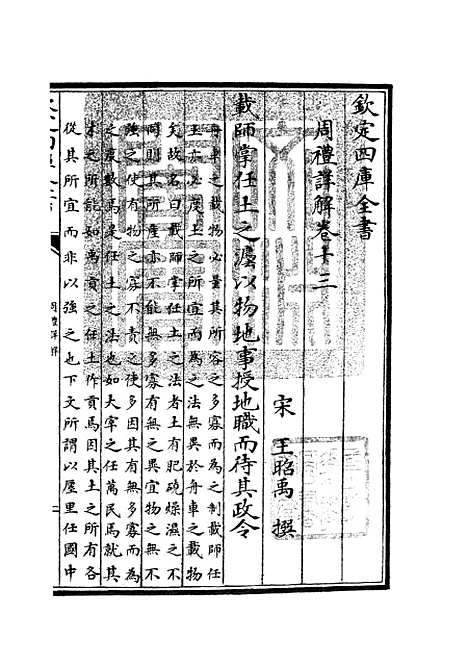 欽定四庫全書
周禮詳解卷十三
宋 王昭禹 撰
載師掌任土之灋以物地事授地職而待其政令
舟車之載物必量其所容之多寡而為之制載師任
土亦必度土之所宜而為之法無異於舟車之載物
矣故名曰載師掌任土之法者土有肥磽燥濕之不
同則其所產亦不能無多寡有無之異宜物之無不
強之使有物之寡不責之使多因其有無多寡而為
之度數焉是任土之法也如大宰之任萬民焉就其
才之所能如禹貢之任土作貢焉因其土之所有各
從其所宜而非以強之也下文所謂以廛里任國中
周禮詳解